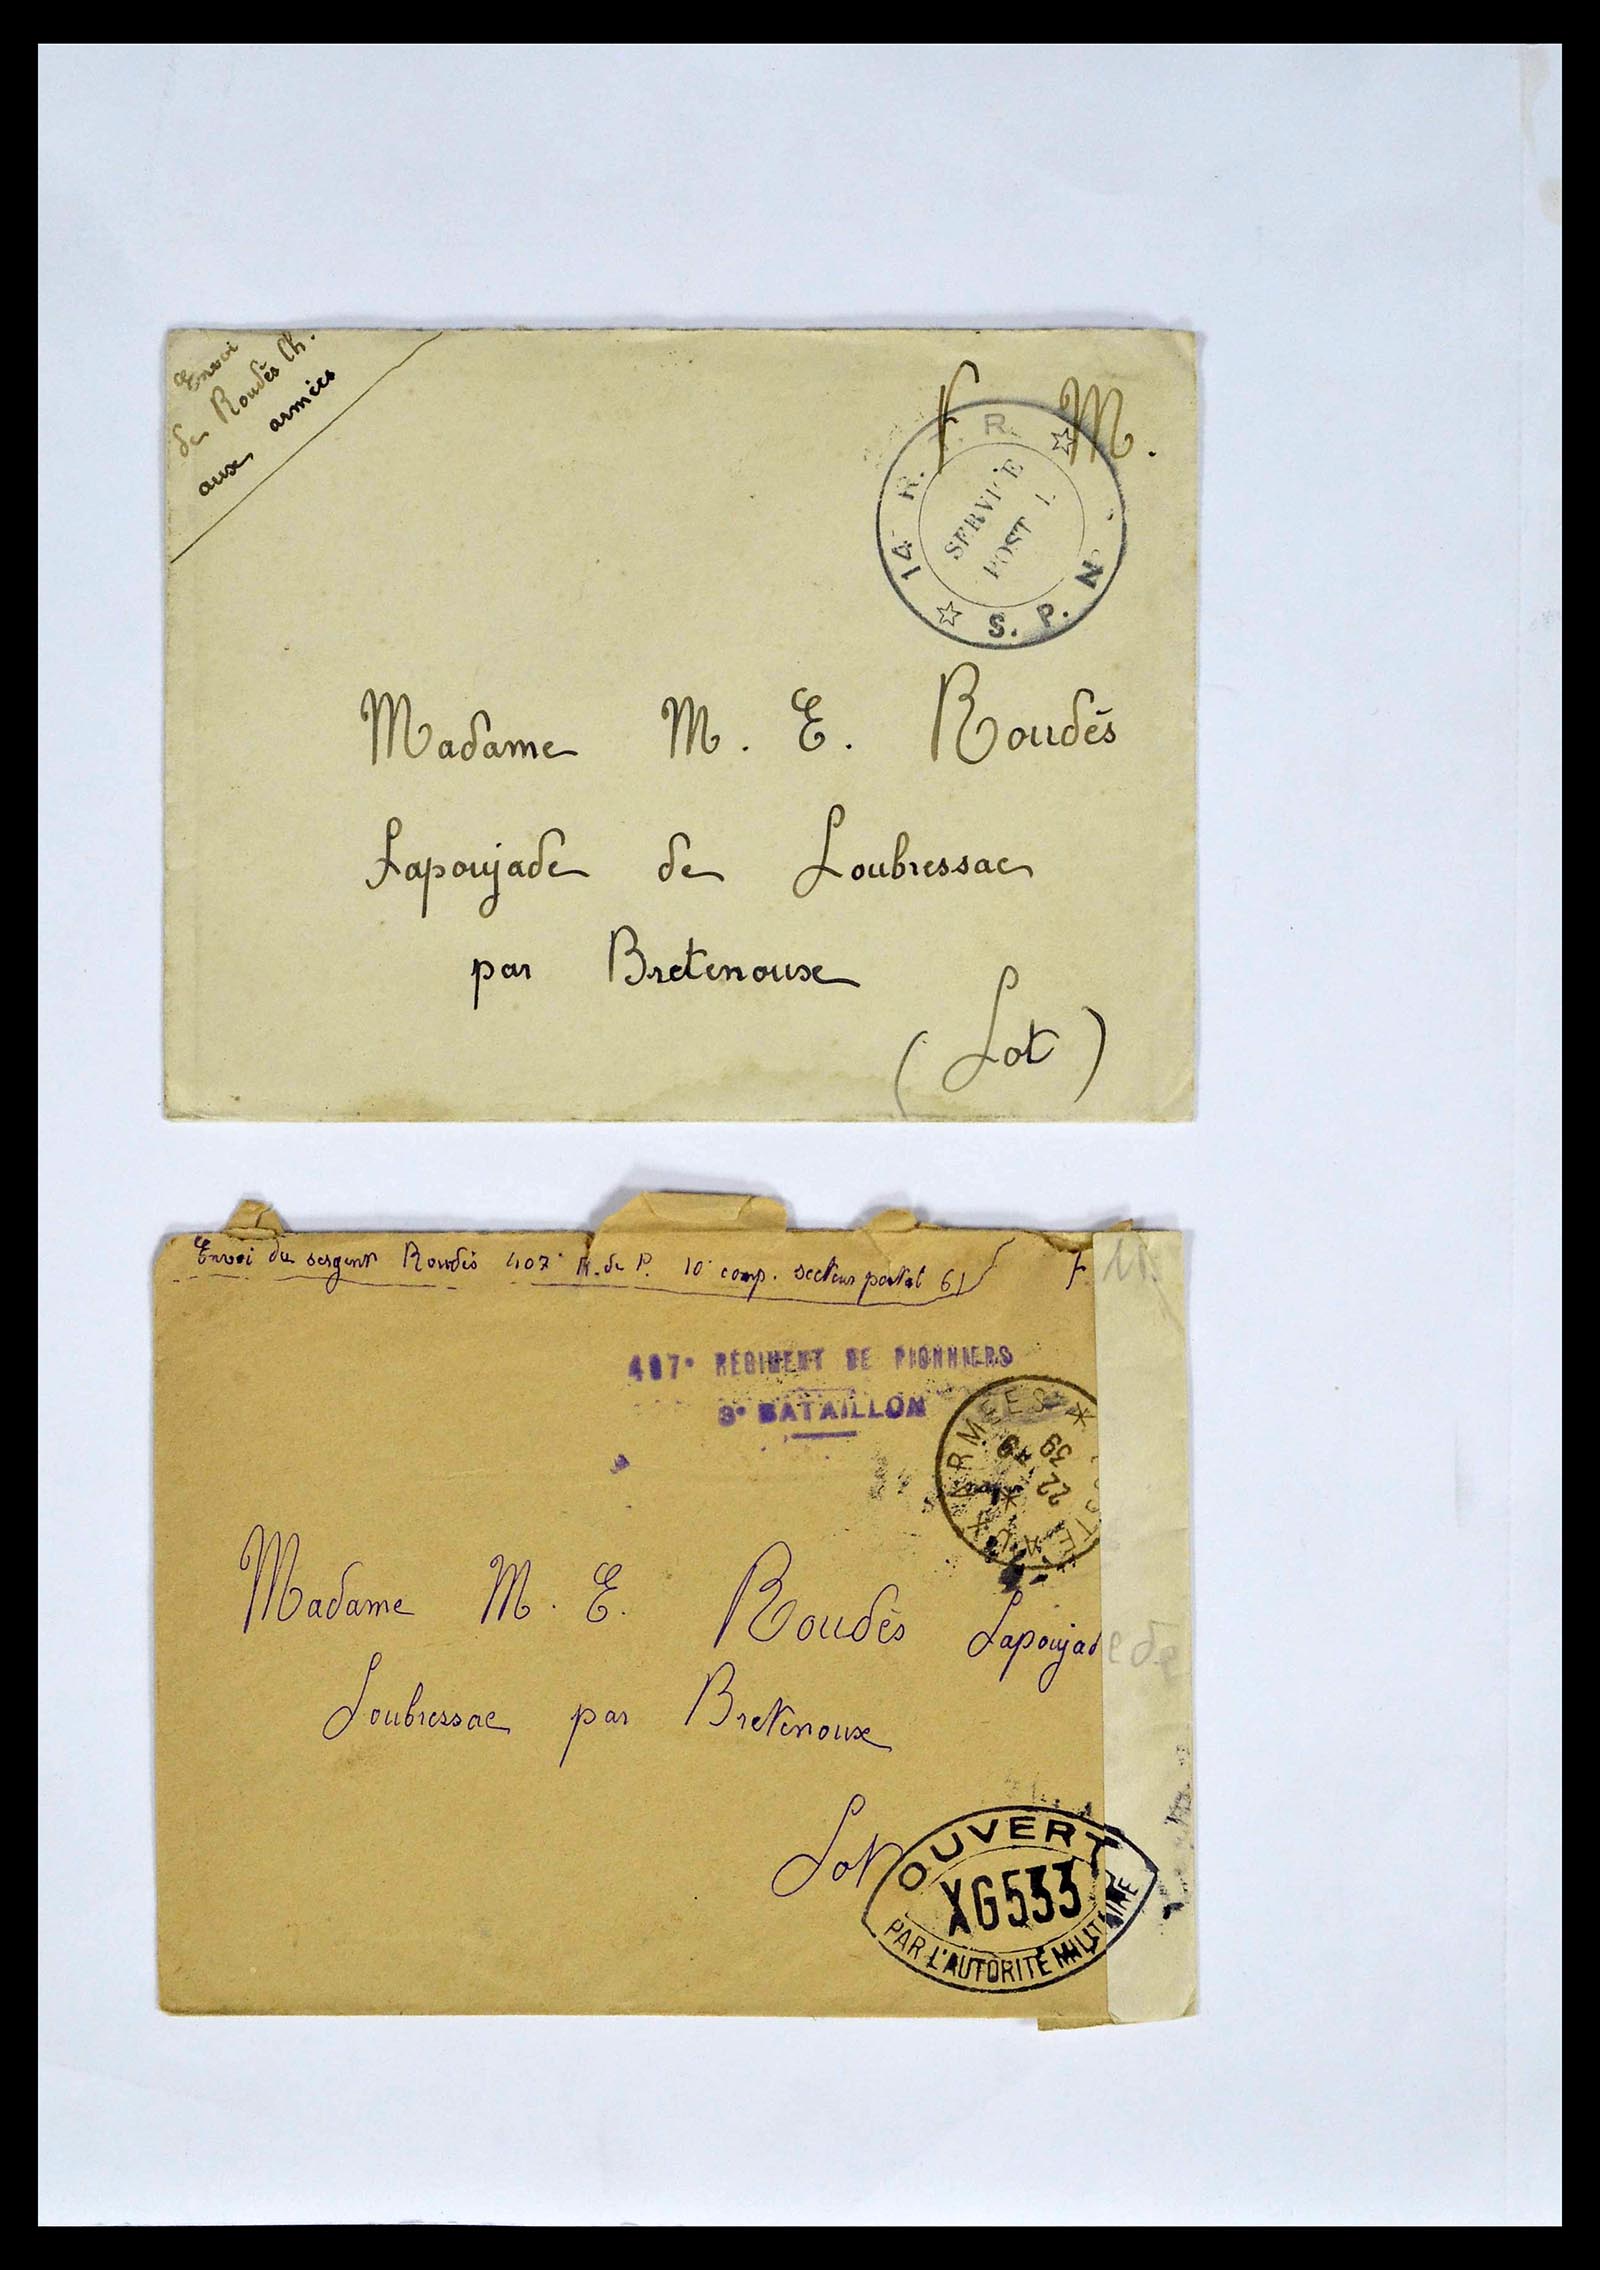 Envoi
de Roudès Ch.
aux armées
F M.
14 R. R.
SERVICE
S. P. N
Madame M. E. Roudés
Lapoujade de Loubressac
par Bretenoux
(Lot)
Envoi du sergent Roudès 407e R. de P. 10e comp. secteur postal 61
F. M.
407e RÉGIMENT DE PIONNIERS
3e BATAILLON
ARMÉES
22
39
Madame M. E. Roudès Lapoujade de
Loubressac par Bretenoux
Lot
OUVERT
XG533
PAR L'AUTORITÉ MILITAIRE